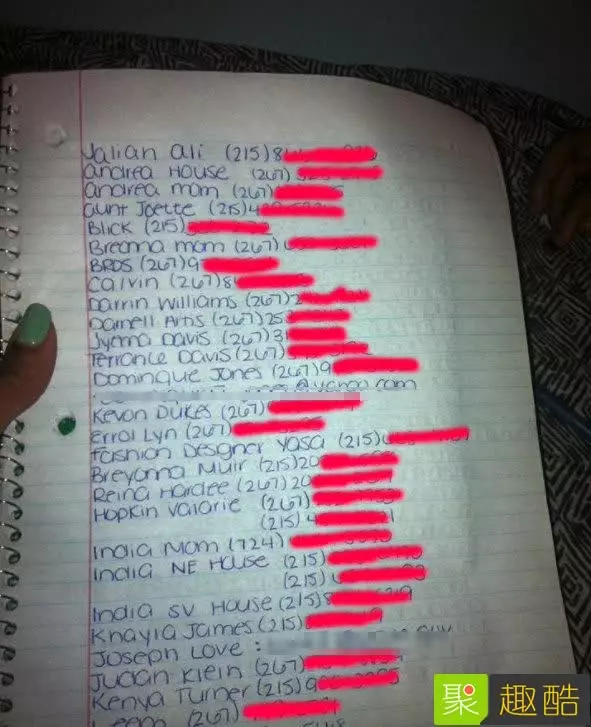 Jalian Ali (215)8
Andrea House (267)
Andrea mom (267)
Aunt Joette (215)4
Blick (215)
Breonna mom (267)
BROS (267)9
Calvin (267)8
Darrin Williams (267)2
Darnell Artis (267)25
Jyema Davis (267)3
Terrance Davis (267)
Dominique Jones (267)9
.com
Kevon Dukes (267)
Errol Lyn (267)
Fashion Designer Yasa (215)
Breyonna Muir (215)20
Reina Hardee (267)20
Hopkin Valarie (267)
(215)4
India Mom (724)
India NE House (215)
(215)
India SV House (215)
Khayla James (215)
Joseph Love :
Judan Klein (267)
Kenya Turner (215)9
(267)
聚 趣酷